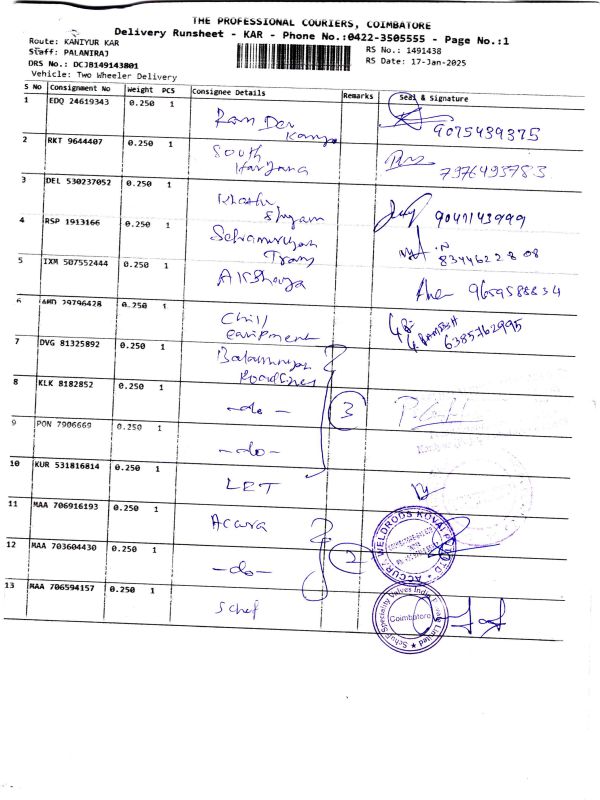 THE PROFESSIONAL COURIERS, COIMBATORE
Delivery Runsheet - KAR - Phone No.:0422-3505555 - Page No.:1
Route: KANIYUR KAR
RS No.: 1491438
Staff: PALANIRAJ
RS Date: 17-Jan-2025
DRS No.: DCJB149143801
Vehicle: Two Wheeler Delivery
S No Consignment No Weight PCS Consignee Details Remarks Seal & Signature
1 EDQ 24619343 0.250 1 Ram Dev
9075439375
2 RKT 9644407 0.250 1 South Haryana
7976493783
3 DEL 530237052 0.250 1 Khatu Shyam
9047143999
4 RSP 1913166 0.250 1 Trans
8344622808
5 IXM 507552444 0.250 1 Akshaya
9659588834
6 AMD 29796428 0.250 1 Chill Equipment
G. RAMESH
6385762995
7 DVG 81325892 0.250 1 Balamurugan Roadlines
8 KLK 8182852 0.250 1 -do- 3
9 PON 7906669 0.250 1 -do-
10 KUR 531816814 0.250 1 LET
11 MAA 706916193 0.250 1 Accura
ACCURA WELDRODS KOVAI
12 MAA 703604430 0.250 1 -do- 2
13 MAA 706594157 0.250 1 Schuf
Schuf Speciality Valves India Private Limited
Coimbatore